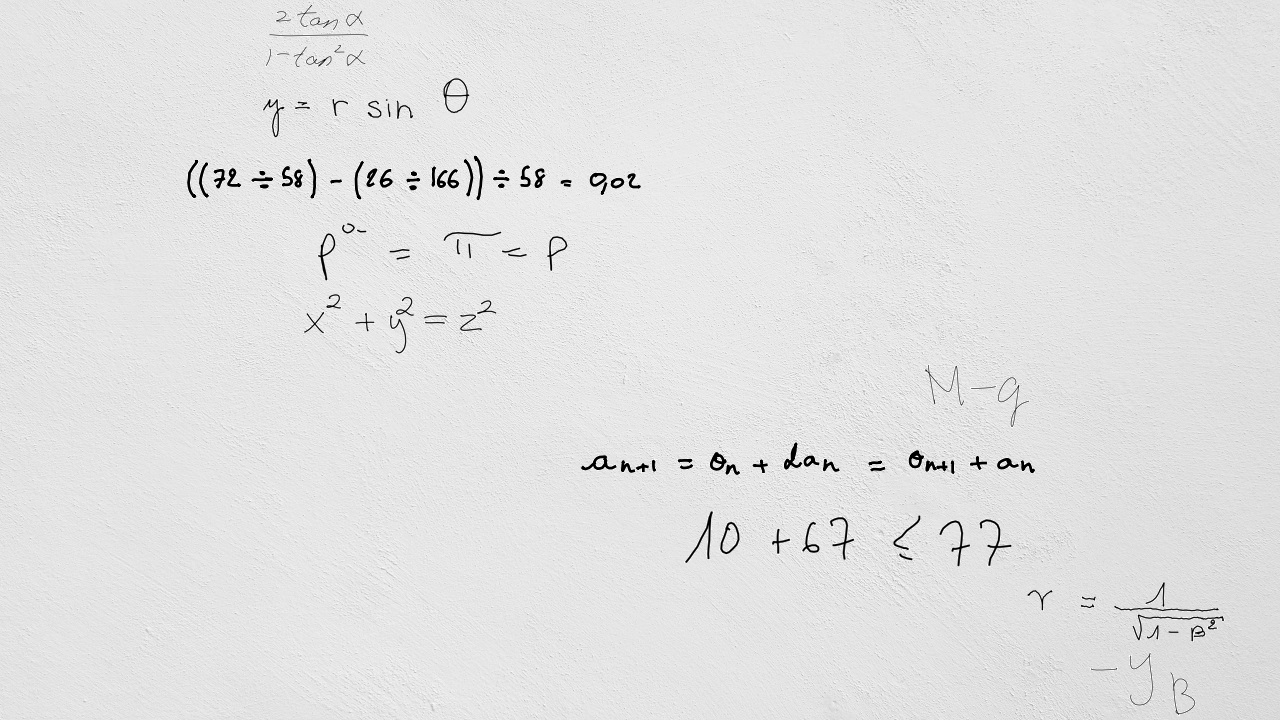 2 tan α
1-tan²α
y = r sin θ
((72 ÷ 58) - (26 ÷ 166)) ÷ 58 = 0,02
= π = p
x² + y² = z²
M-g
a_{n+1} = θ_n + da_n = θ_{n+1} + a_n
10 + 67 ≤ 77
γ = 1
√1-β²
-y_B